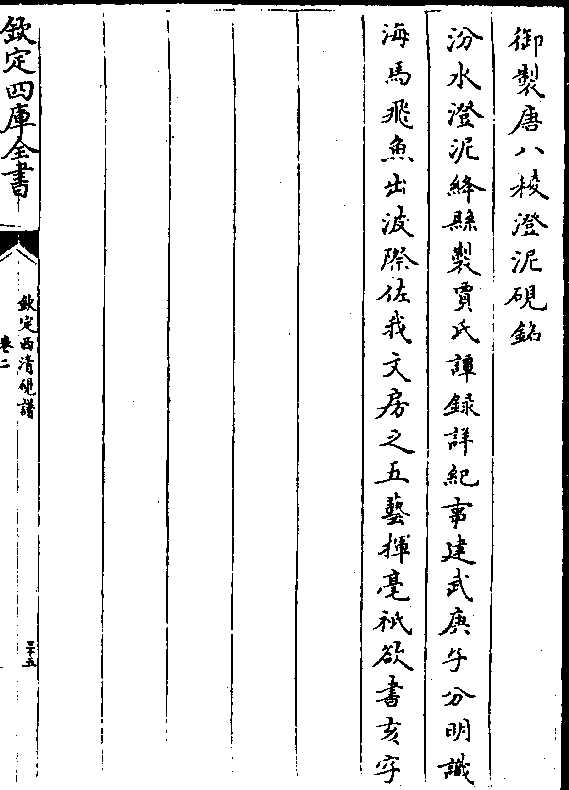 御製唐八稜澄泥硯銘
汾水澄泥絳縣製賈氏譚録詳紀事建武庚午分明識
海馬飛魚出波際佐我文房之五藝揮毫祇欲書亥字
欽定四庫全書
欽定西清硯譜
卷二
三十五